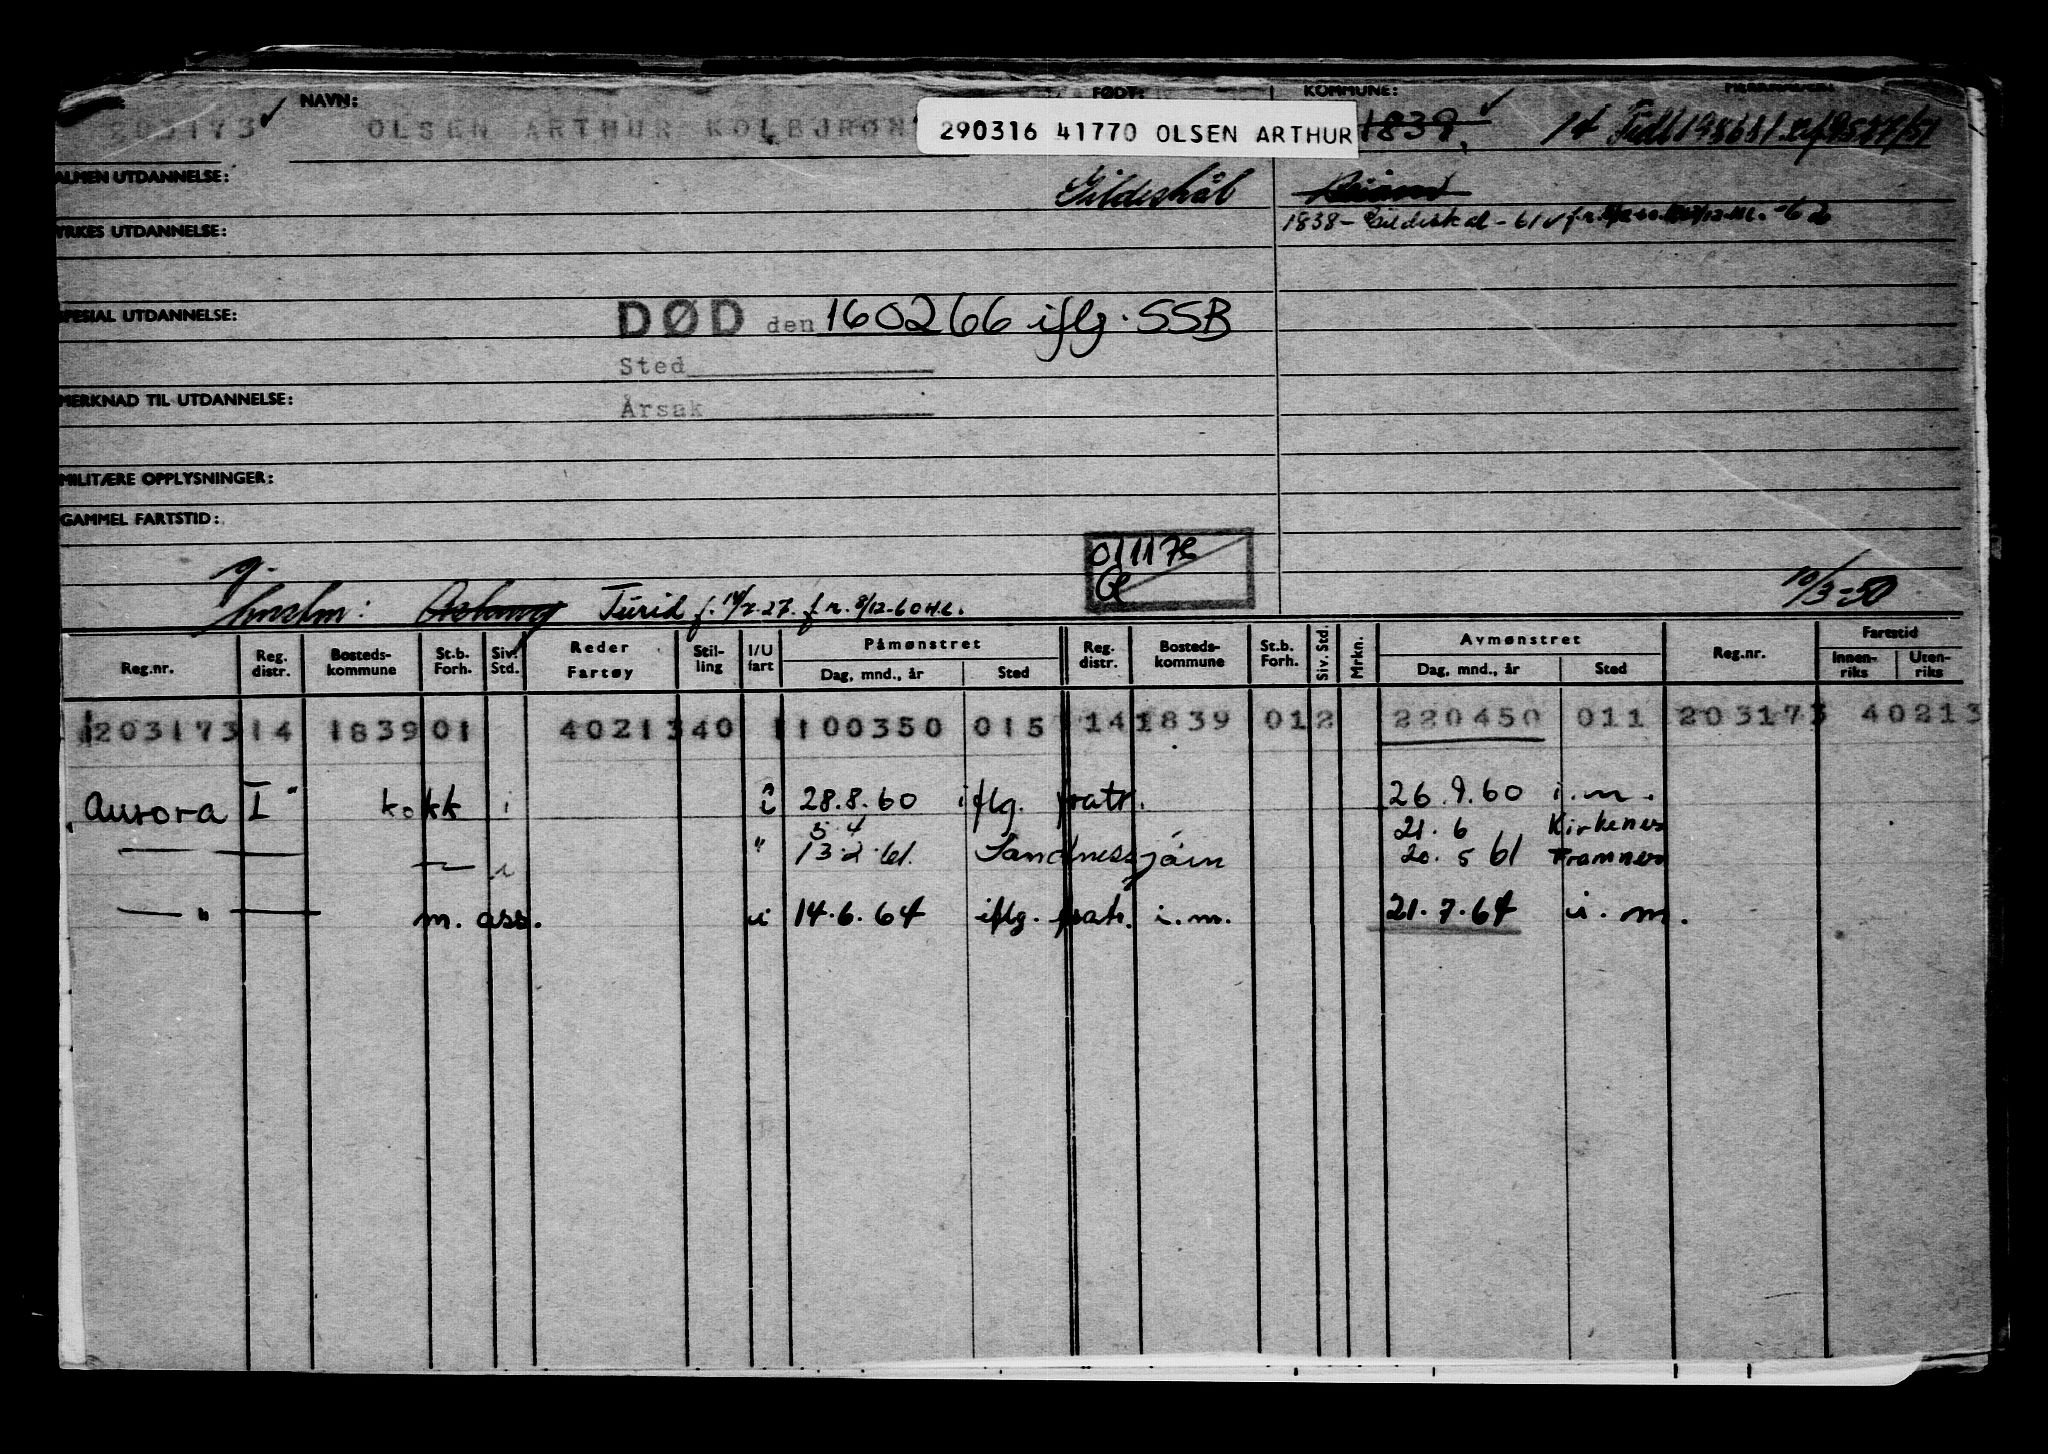 NAVN: FØDT: KOMMUNE:
203173 OLSEN ARTHUR KOLBJRØN 290316 41770 OLSEN ARTHUR 1839, 14
ALMEN UTDANNELSE: Gildeskål
YRKES UTDANNELSE: 1838 - Gildeskål -
SPESIAL UTDANNELSE: DØD den 160266 iflg. SSB
Sted
MERKNAD TIL UTDANNELSE: Årsak
MILITÆRE OPPLYSNINGER:
GAMMEL FARTSTID:
011175
g. 10/3-50
hustru: Turid f. 27. f. r. 8/12-60 H.L.
Reg.nr. Reg. distr. Bosteds- kommune St.b. Forh. Siv. Std. Reder Fartøy Stil- ling I/U fart Påmønstret Dag, mnd., år Sted Reg. distr. Bosteds- kommune St.b. Forh. Siv. Std. Mrkn. Avmønstret Dag, mnd., år Sted Reg.nr. Fartstid Innen- riks Uten- riks
203173 14 1839 01 40213 40 1 100350 015 14 1839 01 2 220450 011 203173 40213
Aurora I" kokk i i 28.8.60 iflg. fratr. 26.9.60 i.m.
5.4 21.6 Kirkenes
— — i " 13.2.61. Sandnessjøen 20.5 61 Tromnes
— " — m. ass. i 14.6.64 iflg. fratr. i.m. 21.7.64 i.m.